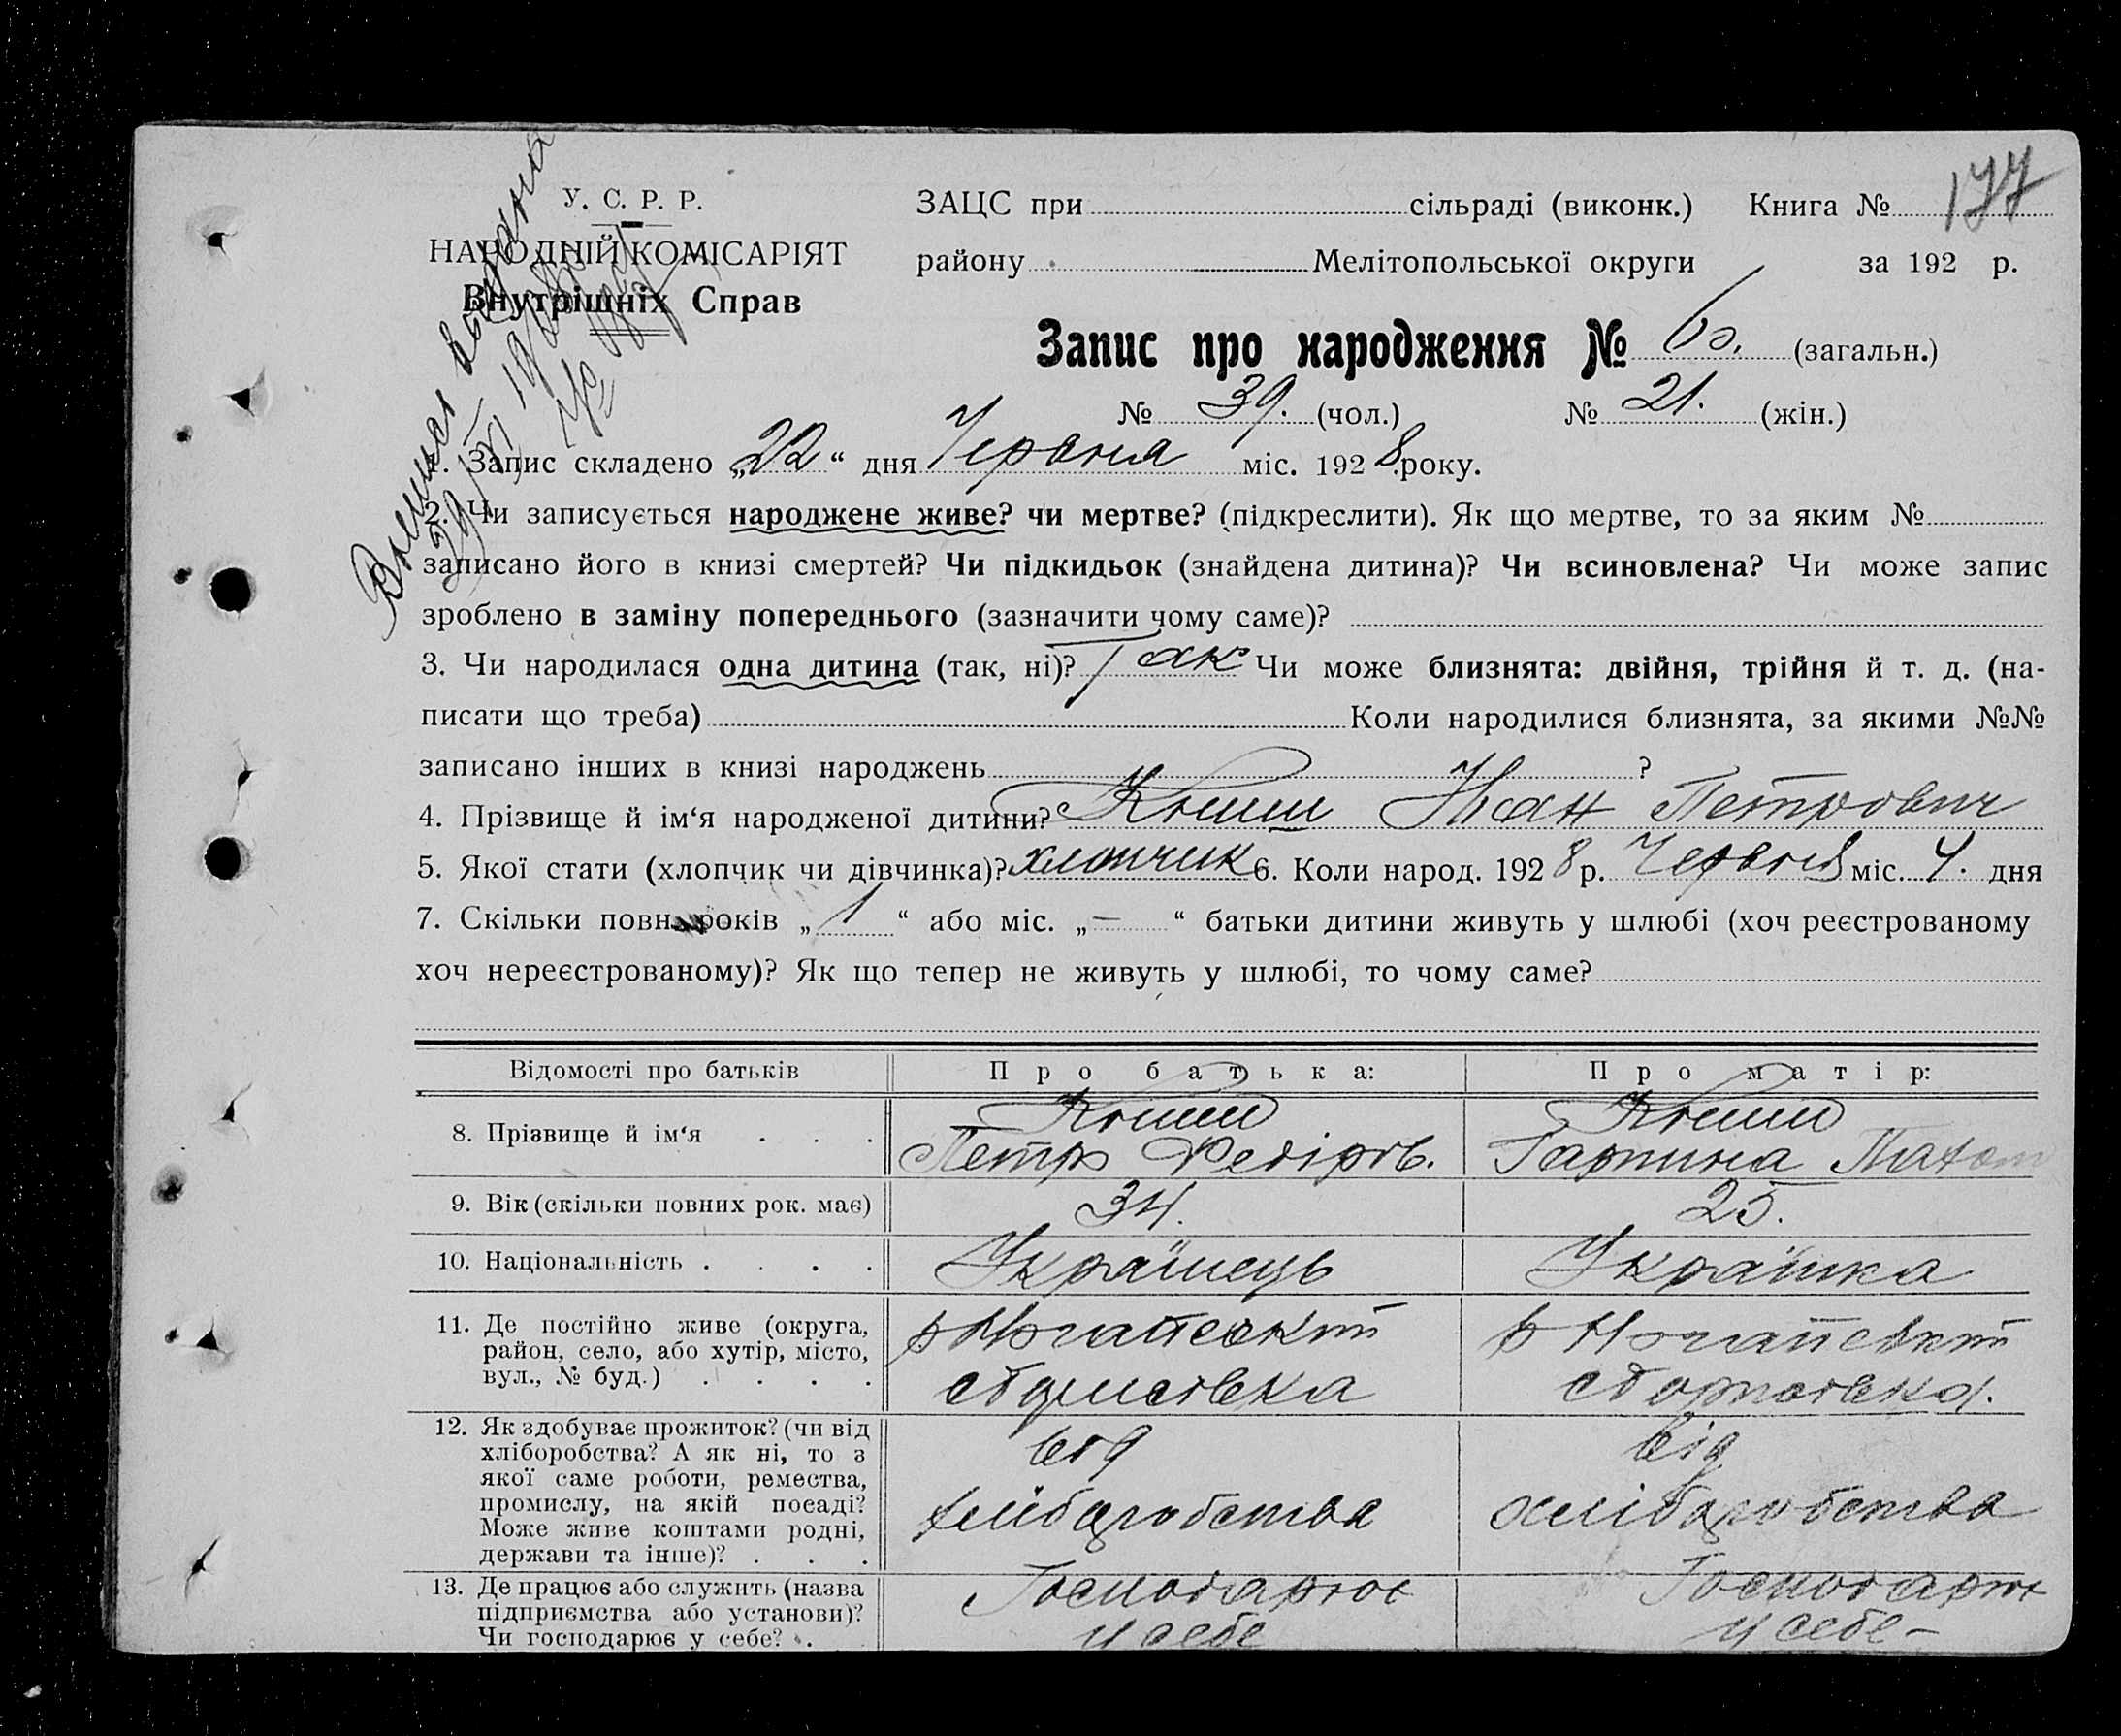 177
У. С. Р. Р.
НАРОДНІЙ КОМІСАРІЯТ
Внутрішніх Справ
ЗАЦС при сільраді (виконк.) Книга №
району Мелітопольської округи за 192 р.
Запис про народження № 60. (загальн.)
№ 39. (чол.) № 21. (жін.)
1. Запис складено „22“ дня Червня міс. 1928 року.
2. Чи записується народжене живе? чи мертве? (підкреслити). Як що мертве, то за яким №
записано його в книзі смертей? Чи підкидьок (знайдена дитина)? Чи всиновлена? Чи може запис
зроблено в заміну попереднього (зазначити чому саме)?
3. Чи народилася одна дитина (так, ні)? Так Чи може близнята: двійня, трійня й т. д. (на-
писати що треба) Коли народилися близнята, за якими №№
записано інших в книзі народжень ?
4. Прізвище й ім‘я народженої дитини? Книш Іван Петрович
5. Якої стати (хлопчик чи дівчинка)? хлопчик 6. Коли народ. 1928 р. Червня міс. 4. дня
7. Скільки повн. років „1“ або міс. „—“ батьки дитини живуть у шлюбі (хоч реєстрованому
хоч нереєстрованому)? Як що тепер не живуть у шлюбі, то чому саме?
Відомості про батьків Про батька: Про матір:
8. Прізвище й ім‘я . . . Книш Петр Федіров. Книш Гарпина
9. Вік (скільки повних рок. має) 34. 25.
10. Національність . . . . Українець Українка
11. Де постійно живе (округа,
район, село, або хутір, місто,
вул., № буд.) . . . .
12. Як здобуває прожиток? (чи від
хліборобства? А як ні, то з
якої саме роботи, ремества,
промислу, на якій посаді?
Може живе коштами родні,
держави та інше)? . . .
від хліборобства від хліборобства
13. Де працює або служить (назва
підприємства або установи)?
Чи господарює у себе? .
Господарює у себе Господарює у себе –